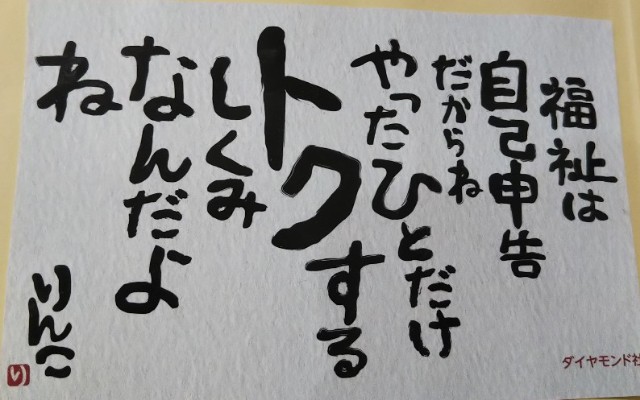 福祉は
自己申告
だからね
やったひとだけ
トクする
しくみ
なんだよ
ね
りんこ
り
ダイヤモンド社